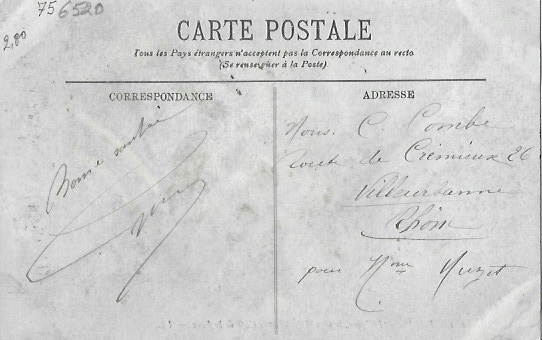 75 6520
2,80
CARTE POSTALE
Tous les Pays étrangers n'acceptent pas la Correspondance au recto
(Se renseigner à la Poste)
CORRESPONDANCE
Bonne santé
ADRESSE
Mons. C. Combe
Route de Crémieux 26
Villeurbanne
Rhône
pour Mme Muzet